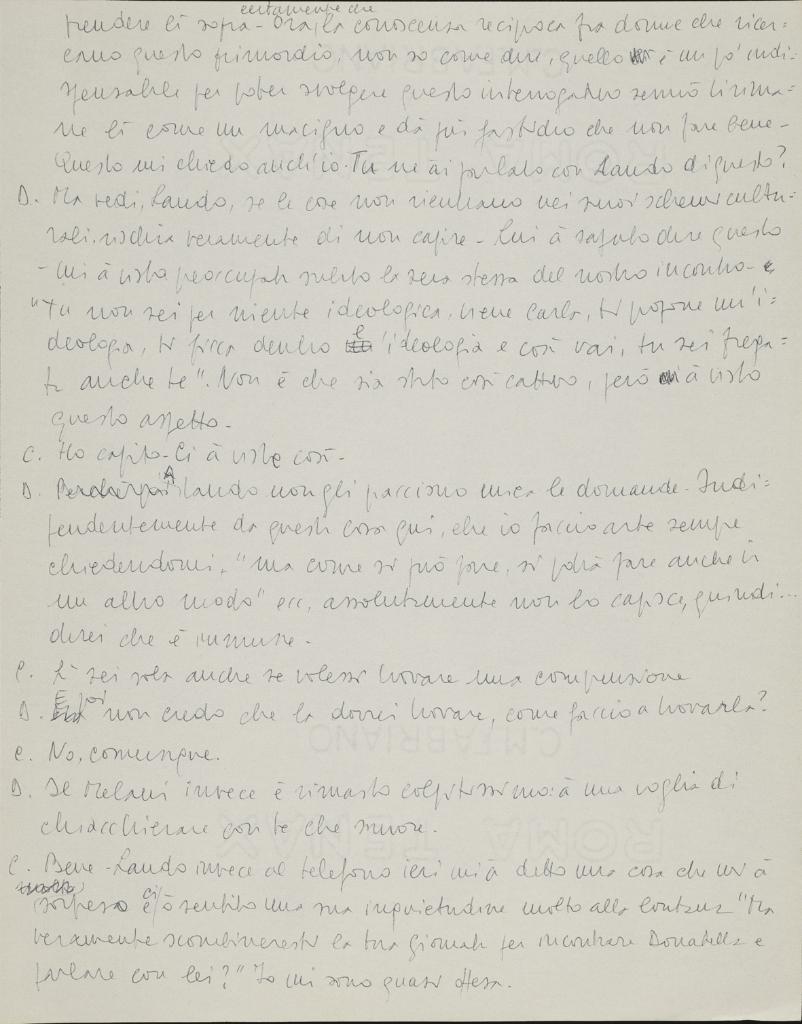 certamente che
prendere lì sopra - Ora, la conoscenza reciproca fra donne che ricer=
cano questo primordio, non so come dire, quello è un po' indi=
spensabile per poter svolgere questo interrogativo sennò ti rima=
ne lì come un macigno e dà più fastidio che non fare bene -
Questo mi chiedo anch'io. Tu ne ài parlato con Lando di questo?
D. Ma vedi, Lando, se le cose non rientrano nei suoi schemi cultu=
rali, rischia veramente di non capire - Lui à saputo dire questo
- mi à vista preoccupata subito la sera stessa del nostro incontro - e
"Tu non sei per niente ideologica, viene Carla, ti propone un'i=
deologia, ti ficca dentro l'ideologia e così vai, tu sei frega=
ta anche te". Non è che sia stato così cattivo, però à visto
questo aspetto -
C. Ho capito - Ci à viste così -
D. A Lando non gli piacciono mica le domande - Indi=
pendentemente da questa cosa qui, che io faccio arte sempre
chiedendomi, "ma come si può fare, si potrà fare anche in
un altro modo" ecc, assolutamente non lo capisce, quindi...
direi che è immune -
C. Lì sei sola anche se volessi trovare una comprensione
D. E poi non credo che la dovrei trovare, come faccio a trovarla?
C. No, comunque.
D. Il Melani invece è rimasto colpitissimo: à una voglia di
chiacchierare con te che muore.
C. Bene - Lando invece al telefono ieri mi à detto una cosa che mi à
sorpreso e ci ò sentito una sua inquietudine molto alla lontana "Ma
veramente scombineresti la tua giornata per incontrare Donatella e
parlare con lei?" Io mi sono quasi offesa.